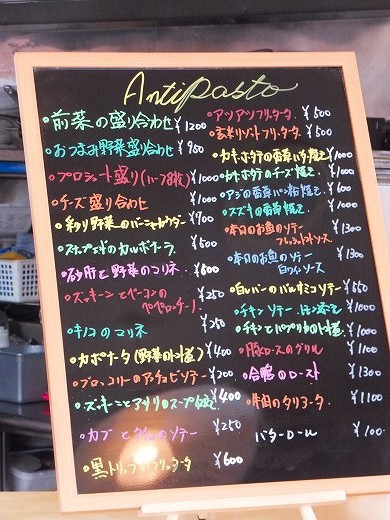 Antipasto
•前菜の盛り合わせ ¥1200
•おつまみ野菜盛り合わせ ¥950
•プロシュート盛り(ハーフ8枚) ¥1000
•チーズ盛り合わせ ¥1000
•彩り野菜のバーニャカウダー ¥900
•のカルボナーラ ¥500
•砂肝と野菜のマリネ ¥500
•ズッキーニとベーコンの
ペペロンチーノ ¥250
•キノコのマリネ ¥250
•カポナータ(野菜のトマト煮) ¥400
•ブロッコリーのアンチョビソテー ¥200
•ズッキーニとアサリのスープ仕立て ¥400
•カブとのソテー ¥250
•黒トリュフのフリッタータ ¥600
•アツアツフリッタータ ¥500
•玄米リゾットフリッタータ ¥500
•カキホタテの香草パン粉焼き ¥1000
•カキホタテのチーズ焼き ¥1000
•アジの香草パン粉焼き ¥600
•スズキの香草焼き ¥1000
•本日のお魚のソテー
フレッシュトマトソース ¥1300
•本日のお魚のソテー
白ワインソース ¥1300
•白レバーのバルサミコソテー ¥550
•チキンソテー ¥1000
•チキンとパプリカのトマト煮 ¥1000
•豚ロースのグリル ¥1100
•合鴨のロースト ¥1300
•牛肉のタリアータ ¥1100
バターロール ¥100